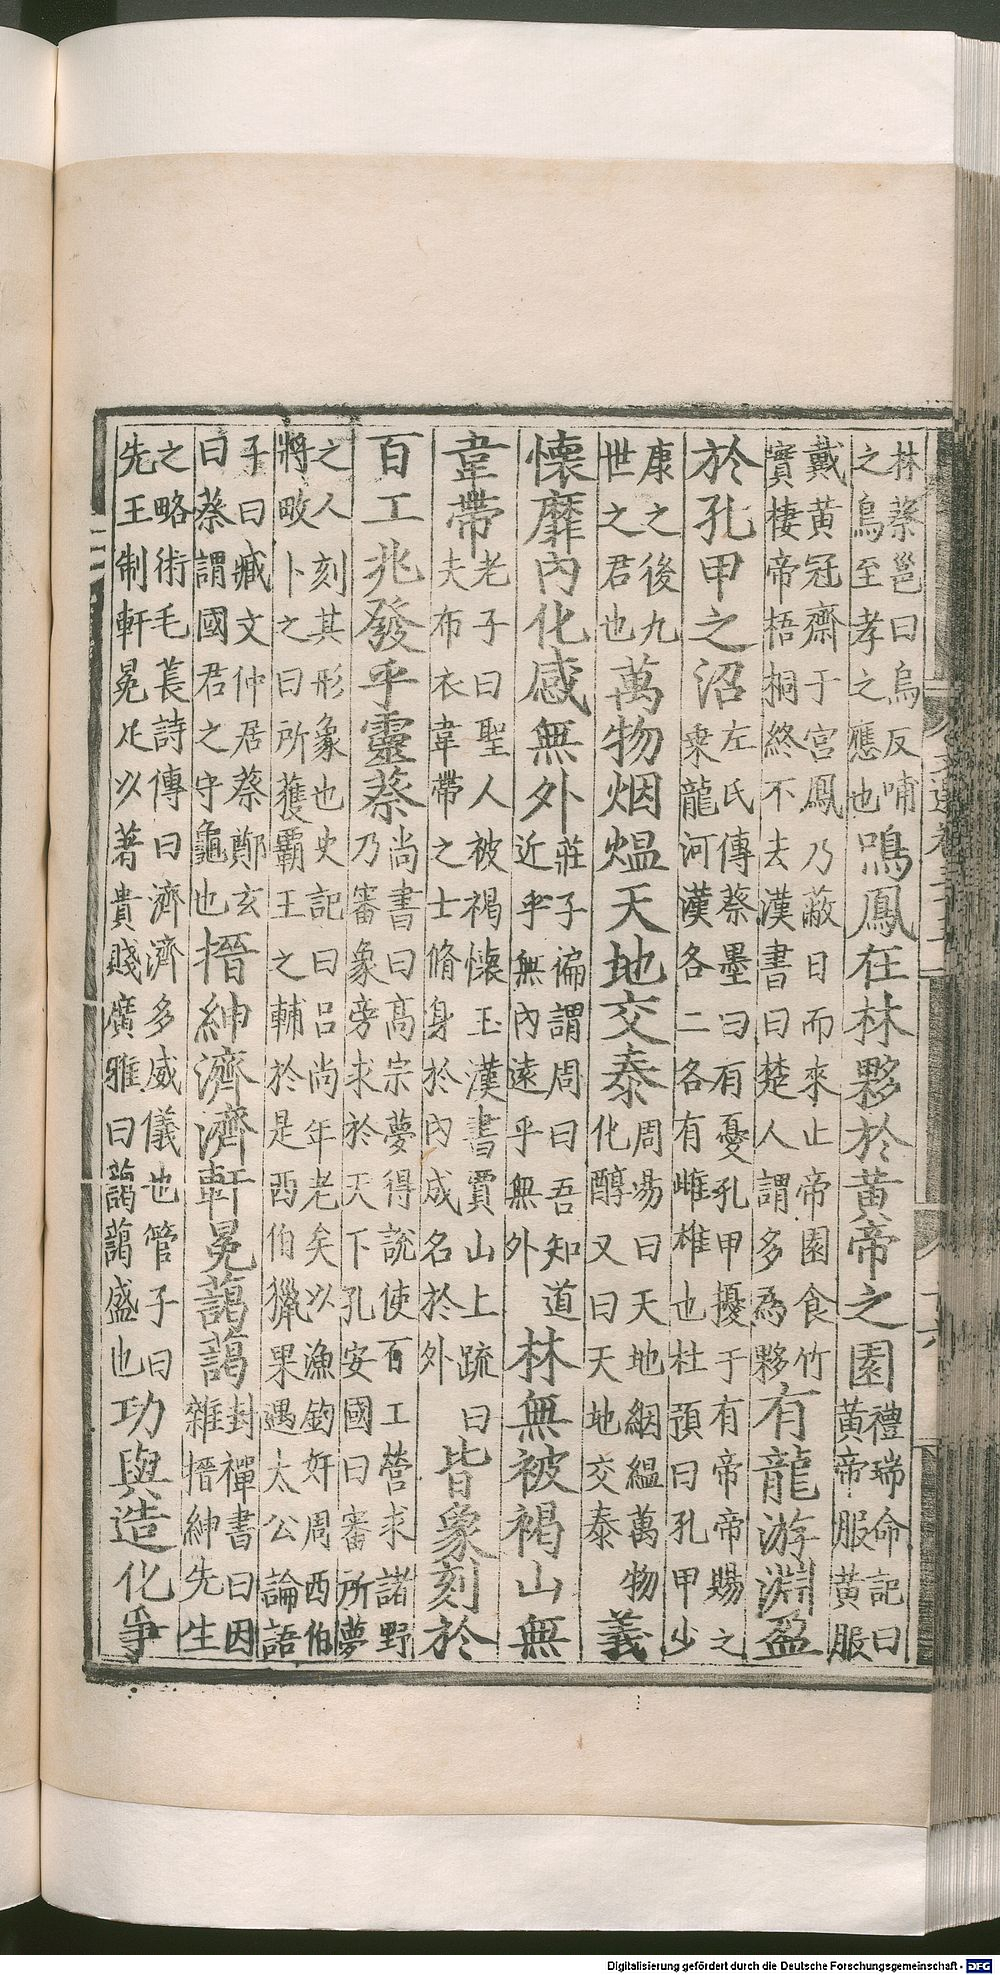 林蔡邕曰烏反哺之烏至孝之應也鳴鳳在林夥於黃帝之園禮瑞命記曰黃帝服黃服
戴黃冠齋于宮鳳乃蔽日而來止帝園食竹實棲帝梧桐終不去漢書曰楚人謂多為夥有龍游淵盈
於孔甲之沼左氏傳蔡墨曰有憂孔甲擾于有帝帝賜之乘龍河漢各二各有雌雄也杜預曰孔甲少
康之後九世之君也萬物烟煴天地交泰周易曰天地絪縕萬物化醇又曰天地交泰義
懷靡內化感無外莊子徧謂周曰吾知道近乎無內遠乎無外林無被褐山無
韋帶老子曰聖人被褐懷玉漢書賈山上疏曰夫布衣韋帶之士脩身於內成名於外皆象刻於
百工兆發乎靈蔡尚書曰高宗夢得說使百工營求諸野乃審象旁求於天下孔安國曰審所夢
之人刻其形象也史記曰呂尚年老矣以漁釣奸周西伯將畋卜之曰所獲霸王之輔於是西伯獵果遇太公論語
子曰臧文仲居蔡鄭玄曰蔡謂國君之守龜也搢紳濟濟軒冕藹藹封禪書曰因雜搢紳先生
之略術毛萇詩傳曰濟濟多威儀也管子曰先王制軒冕足以著貴賤廣雅曰藹藹盛也功與造化爭
Digitalisierung gefördert durch die Deutsche Forschungsgemeinschaft - DFG